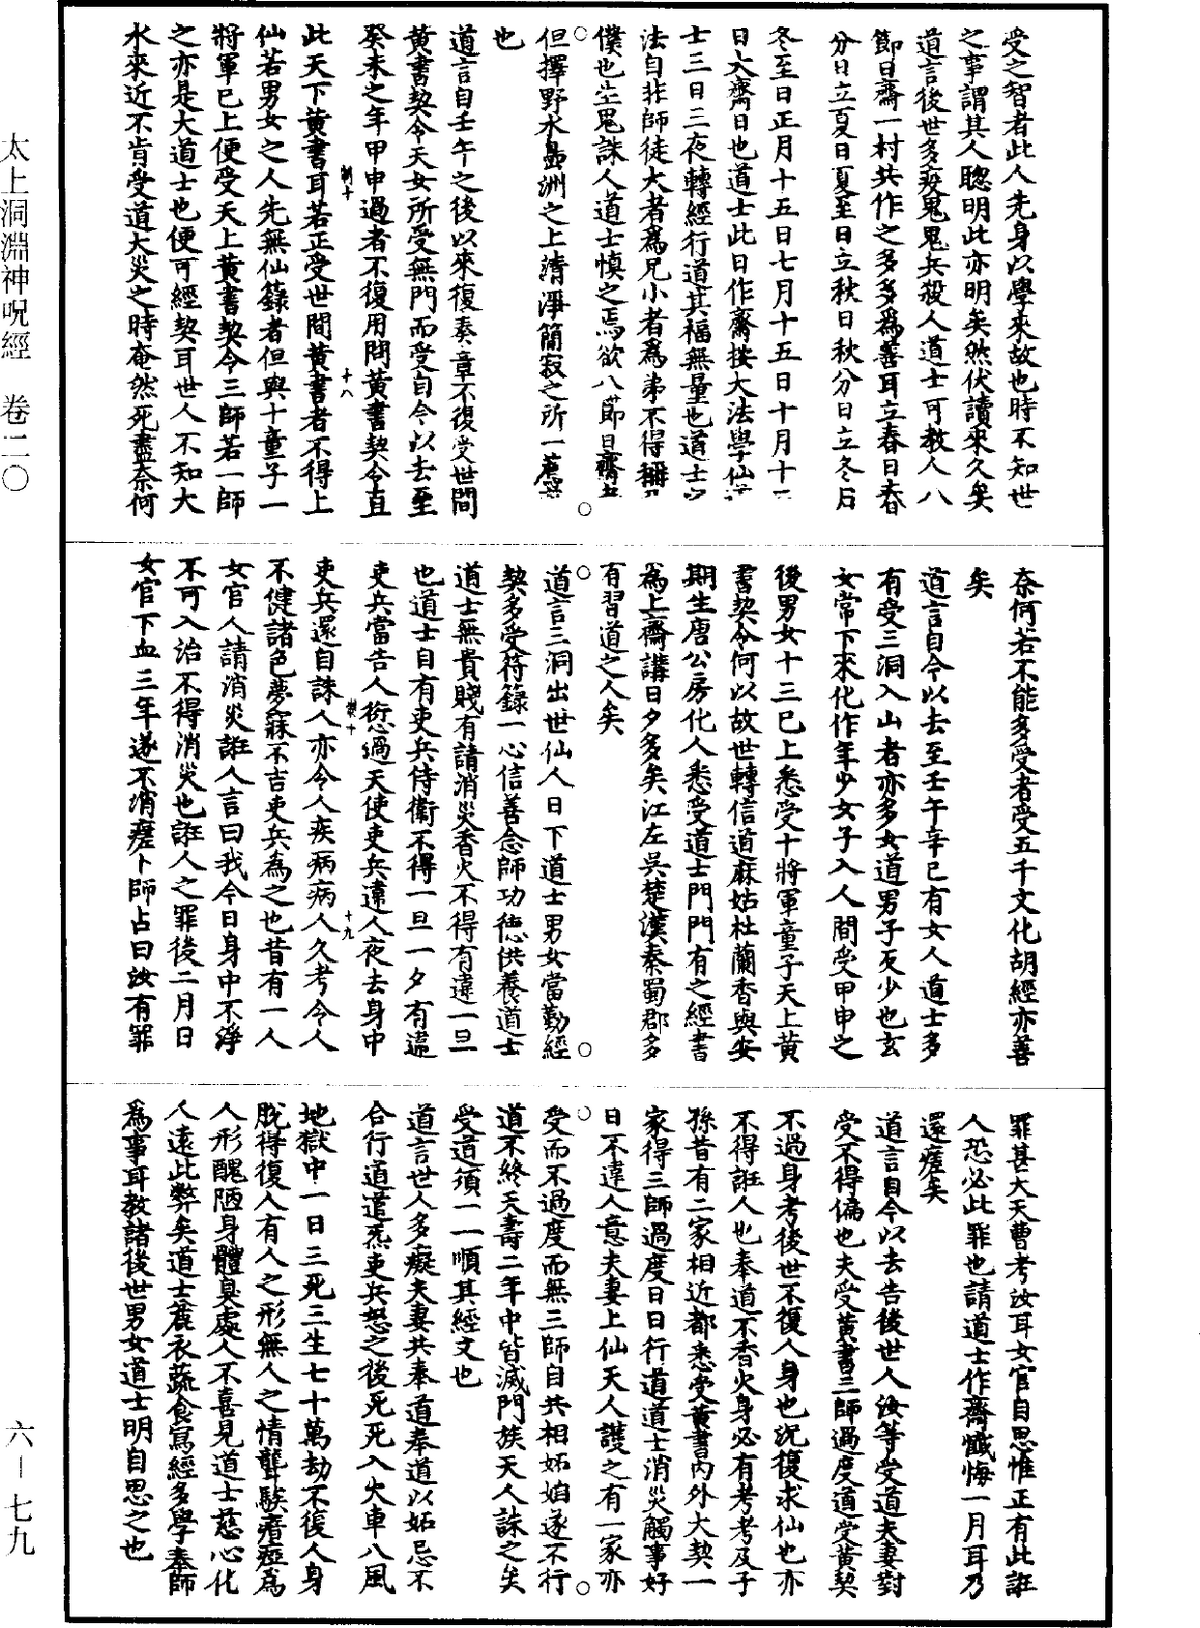 受之智者此人先身以學來故也時不知世
之事謂其人聰明此亦明矣然伏讀來久矣
道言後世多疫鬼鬼兵殺人道士可教人八
節日齋一村共作之多多為善耳立春日春
分日立夏日夏至日立秋日秋分日立冬日
冬至日正月十五日七月十五日十月十
日大齋日也道士此日作齋按大法學仙
士三日三夜轉經行道其福無量也道士之
法自非師徒大者為兄小者為弟不得
僕也生鬼誅人道士慎之焉欲八節日齋
但擇野水島洲之上清淨簡寂之所一
也
道言自壬午之後以來復奏章不復受世間
黃書契令天女所受無門而受自今以去至
癸未之年甲申過者不復用問黃書契令直
此天下黃書耳若正受世間黃書者不得上
仙若男女之人先無仙籙者但與十童子一
將軍已上便受天上黃書契令三師若一師
之亦是大道士也便可經契耳世人不知大
水來近不肯受道大災之時奄然死盡奈何
奈何若不能多受者受五千文化胡經亦善
矣
道言自今以去至壬午辛巳有女人道士多
有受三洞入山者亦多女道男子反少也玄
女常下來化作年少女子入人間受甲申之
後男女十三已上悉受十將軍童子天上黃
書契令何以故世轉信道麻姑杜蘭香與安
期生唐公房化人悉受道士門門有之經書
為上齋講日夕多矣江左吳楚漢秦蜀郡多
有習道之人矣
道言三洞出世仙人日下道士男女當勤經
契多受符籙一心信善念師功德供養道士
道士無貴賤有請消災香火不得有違一旦
也道士自有吏兵侍衛不得一旦一夕有違
吏兵當告人愆過天使吏兵違人夜去身中
吏兵還自誅人亦令人疾病病人久考令人
不健諸色夢寐不吉吏兵為之也昔有一人
女官人請消災誑人言曰我今日身中不淨
不可入治不得消災也誑人之罪後二月日
女官下血三年遂不消瘥卜師占曰汝有罪
罪甚大天曹考汝耳女官自思惟正有此誑
人恐必此罪也請道士作齋懺悔一月耳乃
還瘥矣
道言自今以去告後世人汝等受道夫妻對
受不得偏也夫受黃書三師過度道受黃契
不過身考後世不復人身也況復求仙也亦
不得誑人也奉道不香火身必有考考及子
孫昔有二家相近都悉受黃書內外大契一
家得三師過度日日行道道士消災觸事好
日不違人意夫妻上仙天人護之有一家亦
受而不過度而無三師自共相妬媢遂不行
道不終天壽二年中皆滅門族天人誅之矣
受道須一一順其經文也
道言世人多癡夫妻共奉道奉道以妬忌不
合行道道炁吏兵怒之後死死入火車八風
地獄中一日三死三生七十萬劫不復人身
脫得復人有人之形無人之情聾騃瘖瘂為
人形醜陋身體臭處人不喜見道士慈心化
人遠此弊矣道士麁衣蔬食寫經多學奉師
為事耳教諸後世男女道士明自思之也
太上洞淵神呪經 卷二〇
六—七九